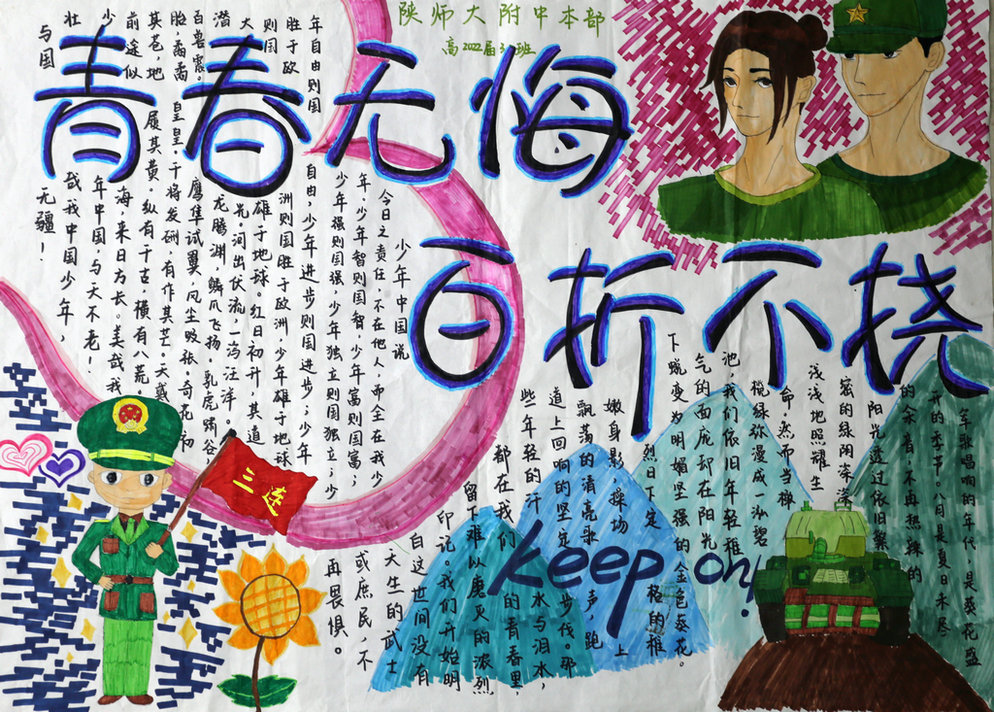 陕师大附中本部
高2022届
青春无悔
百折不挠
少年中国说
今日之责任，不在他人，而全在我少
年。少年智则国智，少年富则国富；
少年强则国强，少年独立则国独立；少
年自由则国自由，少年进步则国进步；少年
胜于欧洲则国胜于欧洲，少年雄于地球
则国雄于地球。红日初升，其道
大光。河出伏流，一泻汪洋。
潜龙腾渊，鳞爪飞扬，乳虎啸谷
百兽震。鹰隼试翼，风尘吸张。奇花初
胎，矞矞皇皇。干将发硎，有作其芒。天戴
其苍，地履其黄。纵有千古，横有八荒。
前途似海，来日方长。美哉我
少年中国，与天不老！
壮哉我中国少年，
与国无疆！
军歌唱响的年代，是葵花盛
开的季节。八月是夏日未尽
的余音，不再热辣的
阳光透过依旧繁
密的绿阴深深
浅浅地照耀生
命，然而当禅
悦绿弥漫成一泓碧
池，我们依旧年轻稚
气的面庞却在阳光
下蜕变为明媚坚强的金色葵花。
烈日下定格的稚
嫩身影，操场上
飘荡的清亮歌声，跑
道上回响的坚定步伐。那
些年轻的汗水与泪水，
都在我们的青春里
留下难以磨灭的浓烈
印记。我们开始明
白这世间没有
天生的武士
或庶民，不
再畏惧。
keep on!
三连